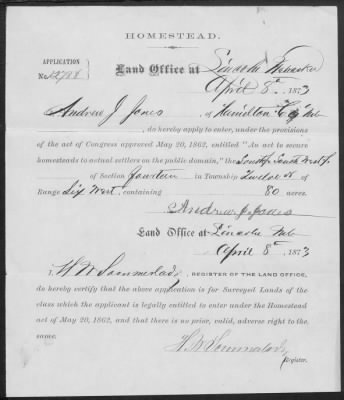 HOMESTEAD.
APPLICATION
No.
Land Office at Lincoln Nebraska
April 8th 1873
Andrew J Jones, of Hamilton Co Neb
, do hereby apply to enter, under the provisions
of the act of Congress approved May 20, 1862, entitled "An act to secure
homesteads to actual settlers on the public domain," the South ½ South West ¼
of Section fourteen in Township Twelve N of
Range Six West, containing 80 acres.
Andrew J. Jones
Land Office at Lincoln Neb
April 8th 1873
I, H W Sommerlad, REGISTER OF THE LAND OFFICE,
do hereby certify that the above application is for Surveyed Lands of the
class which the applicant is legally entitled to enter under the Homestead
act of May 20, 1862, and that there is no prior, valid, adverse right to the
same.
H W Sommerlad
Register.